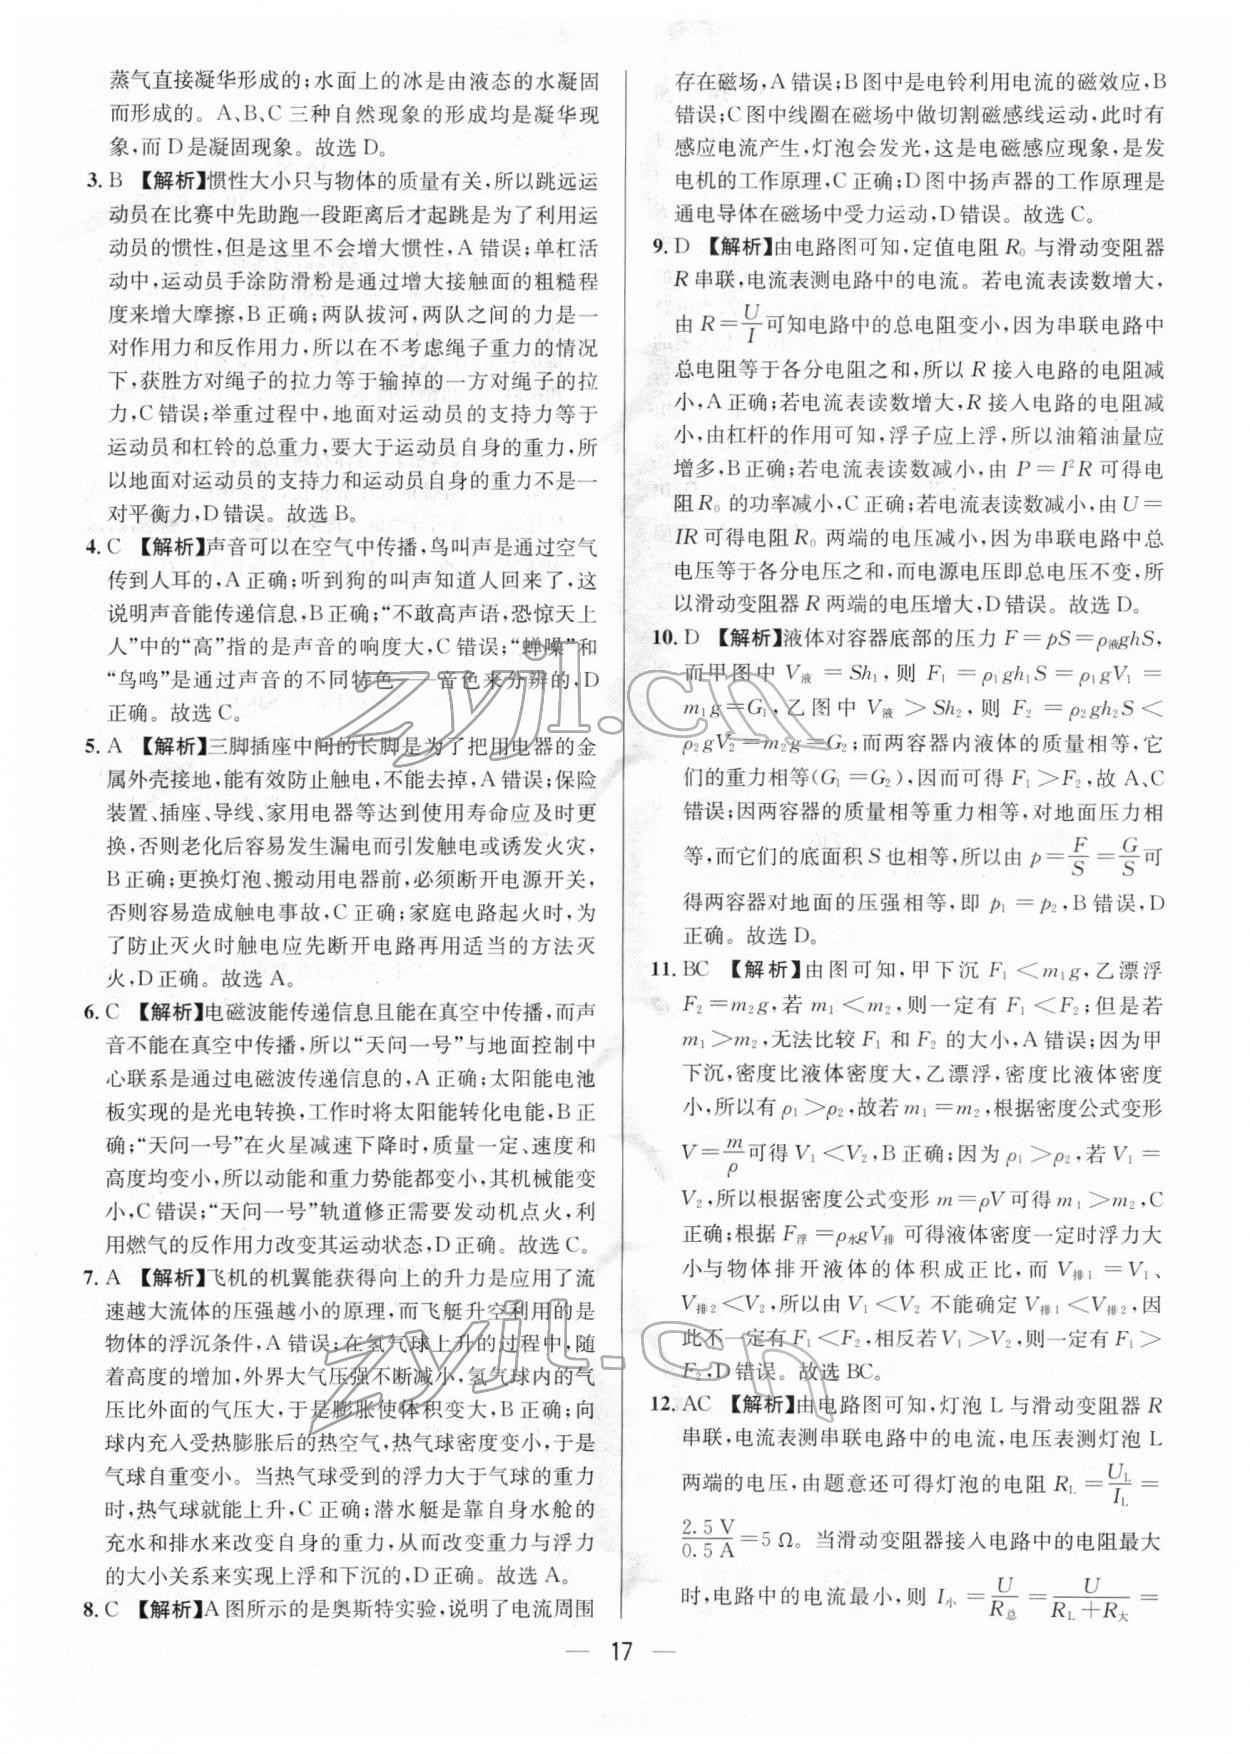 蒸气直接凝华形成的;水面上的冰是由液态的水凝固
而形成的。A、B、C 三种自然现象的形成均是凝华现
象,而 D 是凝固现象。故选 D。
3. B 【解析】惯性大小只与物体的质量有关,所以跳远运
动员在比赛中先助跑一段距离后才起跳是为了利用运
动员的惯性,但是这里不会增大惯性,A 错误;单杠活
动中,运动员手涂防滑粉是通过增大接触面的粗糙程
度来增大摩擦,B 正确;两队拔河,两队之间的力是一
对作用力和反作用力,所以在不考虑绳子重力的情况
下,获胜方对绳子的拉力等于输掉的一方对绳子的拉
力,C 错误;举重过程中,地面对运动员的支持力等于
运动员和杠铃的总重力,要大于运动员自身的重力,所
以地面对运动员的支持力和运动员自身的重力不是一
对平衡力,D 错误。故选 B。
4. C 【解析】声音可以在空气中传播,鸟叫声是通过空气
传到人耳的,A 正确;听到狗的叫声知道人回来了,这
说明声音能传递信息,B 正确;“不敢高声语,恐惊天上
人”中的“高”指的是声音的响度大,C 错误;“蝉噪”和
“鸟鸣”是通过声音的不同特色——音色来分辨的,D
正确。故选 C。
5. A 【解析】三脚插座中间的长脚是为了把用电器的金
属外壳接地,能有效防止触电,不能去掉,A 错误;保险
装置、插座、导线、家用电器等达到使用寿命应及时更
换,否则老化后容易发生漏电而引发触电或诱发火灾,
B 正确;更换灯泡、搬动用电器前,必须断开电源开关,
否则容易造成触电事故,C 正确;家庭电路起火时,为
了防止灭火时触电应先断开电路再用适当的方法灭
火,D 正确。故选 A。
6. C 【解析】电磁波能传递信息且能在真空中传播,而声
音不能在真空中传播,所以“天问一号”与地面控制中
心联系是通过电磁波传递信息的,A 正确;太阳能电池
板实现的是光电转换,工作时将太阳能转化电能,B 正
确;“天问一号”在火星减速下降时,质量一定、速度和
高度均变小,所以动能和重力势能都变小,其机械能变
小,C 错误;“天问一号”轨道修正需要发动机点火,利
用燃气的反作用力改变其运动状态,D 正确。故选 C。
7. A 【解析】飞机的机翼能获得向上的升力是应用了流
速越大流体的压强越小的原理,而飞艇升空利用的是
物体的浮沉条件,A 错误;在氢气球上升的过程中,随
着高度的增加,外界大气压强不断减小,氢气球内的气
压比外面的气压大,于是膨胀使体积变大,B 正确;向
球内充入受热膨胀后的热空气,热气球密度变小,于是
气球自重变小。当热气球受到的浮力大于气球的重力
时,热气球就能上升,C 正确;潜水艇是靠自身水舱的
充水和排水来改变自身的重力,从而改变重力与浮力
的大小关系来实现上浮和下沉的,D 正确。故选 A。
8. C 【解析】A 图所示的是奥斯特实验,说明了电流周围
存在磁场,A 错误;B 图中是电铃利用电流的磁效应,B
错误;C 图中线圈在磁场中做切割磁感线运动,此时有
感应电流产生,灯泡会发光,这是电磁感应现象,是发
电机的工作原理,C 正确;D 图中扬声器的工作原理是
通电导体在磁场中受力运动,D 错误。故选 C。
9. D 【解析】由电路图可知,定值电阻 R₀ 与滑动变阻器
R 串联,电流表测电路中的电流。若电流表读数增大,
由 R=U/I可知电路中的总电阻变小,因为串联电路中
总电阻等于各分电阻之和,所以 R 接入电路的电阻减
小,A 正确;若电流表读数增大,R 接入电路的电阻减
小,由杠杆的作用可知,浮子应上浮,所以油箱油量应
增多,B 正确;若电流表读数减小,由 P=I²R 可得电
阻 R₀ 的功率减小,C 正确;若电流表读数减小,由 U=
IR 可得电阻 R₀ 两端的电压减小,因为串联电路中总
电压等于各分电压之和,而电源电压即总电压不变,所
以滑动变阻器 R 两端的电压增大,D 错误。故选 D。
10. D 【解析】液体对容器底部的压力 F=pS=ρ液ghS,
而甲图中 V液=Sh₁,则 F₁=ρ₁gh₁S=ρ₁gV₁=
m₁g=G₁,乙图中 V液>Sh₂,则 F₂=ρ₂gh₂S<
ρ₂gV₂=m₂g=G₂;而两容器内液体的质量相等,它
们的重力相等(G₁=G₂),因而可得 F₁>F₂,故 A、C
错误;因两容器的质量相等重力相等,对地面压力相
等,而它们的底面积 S 也相等,所以由 p=F/S=G/S可
得两容器对地面的压强相等,即 p₁=p₂,B 错误,D
正确。故选 D。
11. BC 【解析】由图可知,甲下沉 F₁<m₁g,乙漂浮
F₂=m₂g,若 m₁<m₂,则一定有 F₁<F₂;但是若
m₁>m₂,无法比较 F₁ 和 F₂ 的大小,A 错误;因为甲
下沉,密度比液体密度大,乙漂浮,密度比液体密度
小,所以有 ρ₁>ρ₂,故若 m₁=m₂,根据密度公式变形
V=m/ρ可得 V₁<V₂,B 正确;因为 ρ₁>ρ₂,若 V₁=
V₂,所以根据密度公式变形 m=ρV 可得 m₁>m₂,C
正确;根据 F浮=ρ水gV排 可得液体密度一定时浮力大
小与物体排开液体的体积成正比,而 V排₁=V₁、
V排₂<V₂,所以由 V₁<V₂ 不能确定 V排₁<V排₂,因
此不一定有 F₁<F₂,相反若 V₁>V₂,则一定有 F₁>
F₂,D 错误。故选 BC。
12. AC 【解析】由电路图可知,灯泡 L 与滑动变阻器 R
串联,电流表测串联电路中的电流,电压表测灯泡 L
两端的电压,由题意还可得灯泡的电阻 R_L=U_L/I_L=
2.5 V/0.5 A=5 Ω。当滑动变阻器接入电路中的电阻最大
时,电路中的电流最小,则 I小=U/R总=U/(R_L+R大)=
— 17 —
zyjl.cn
zyjl.cn